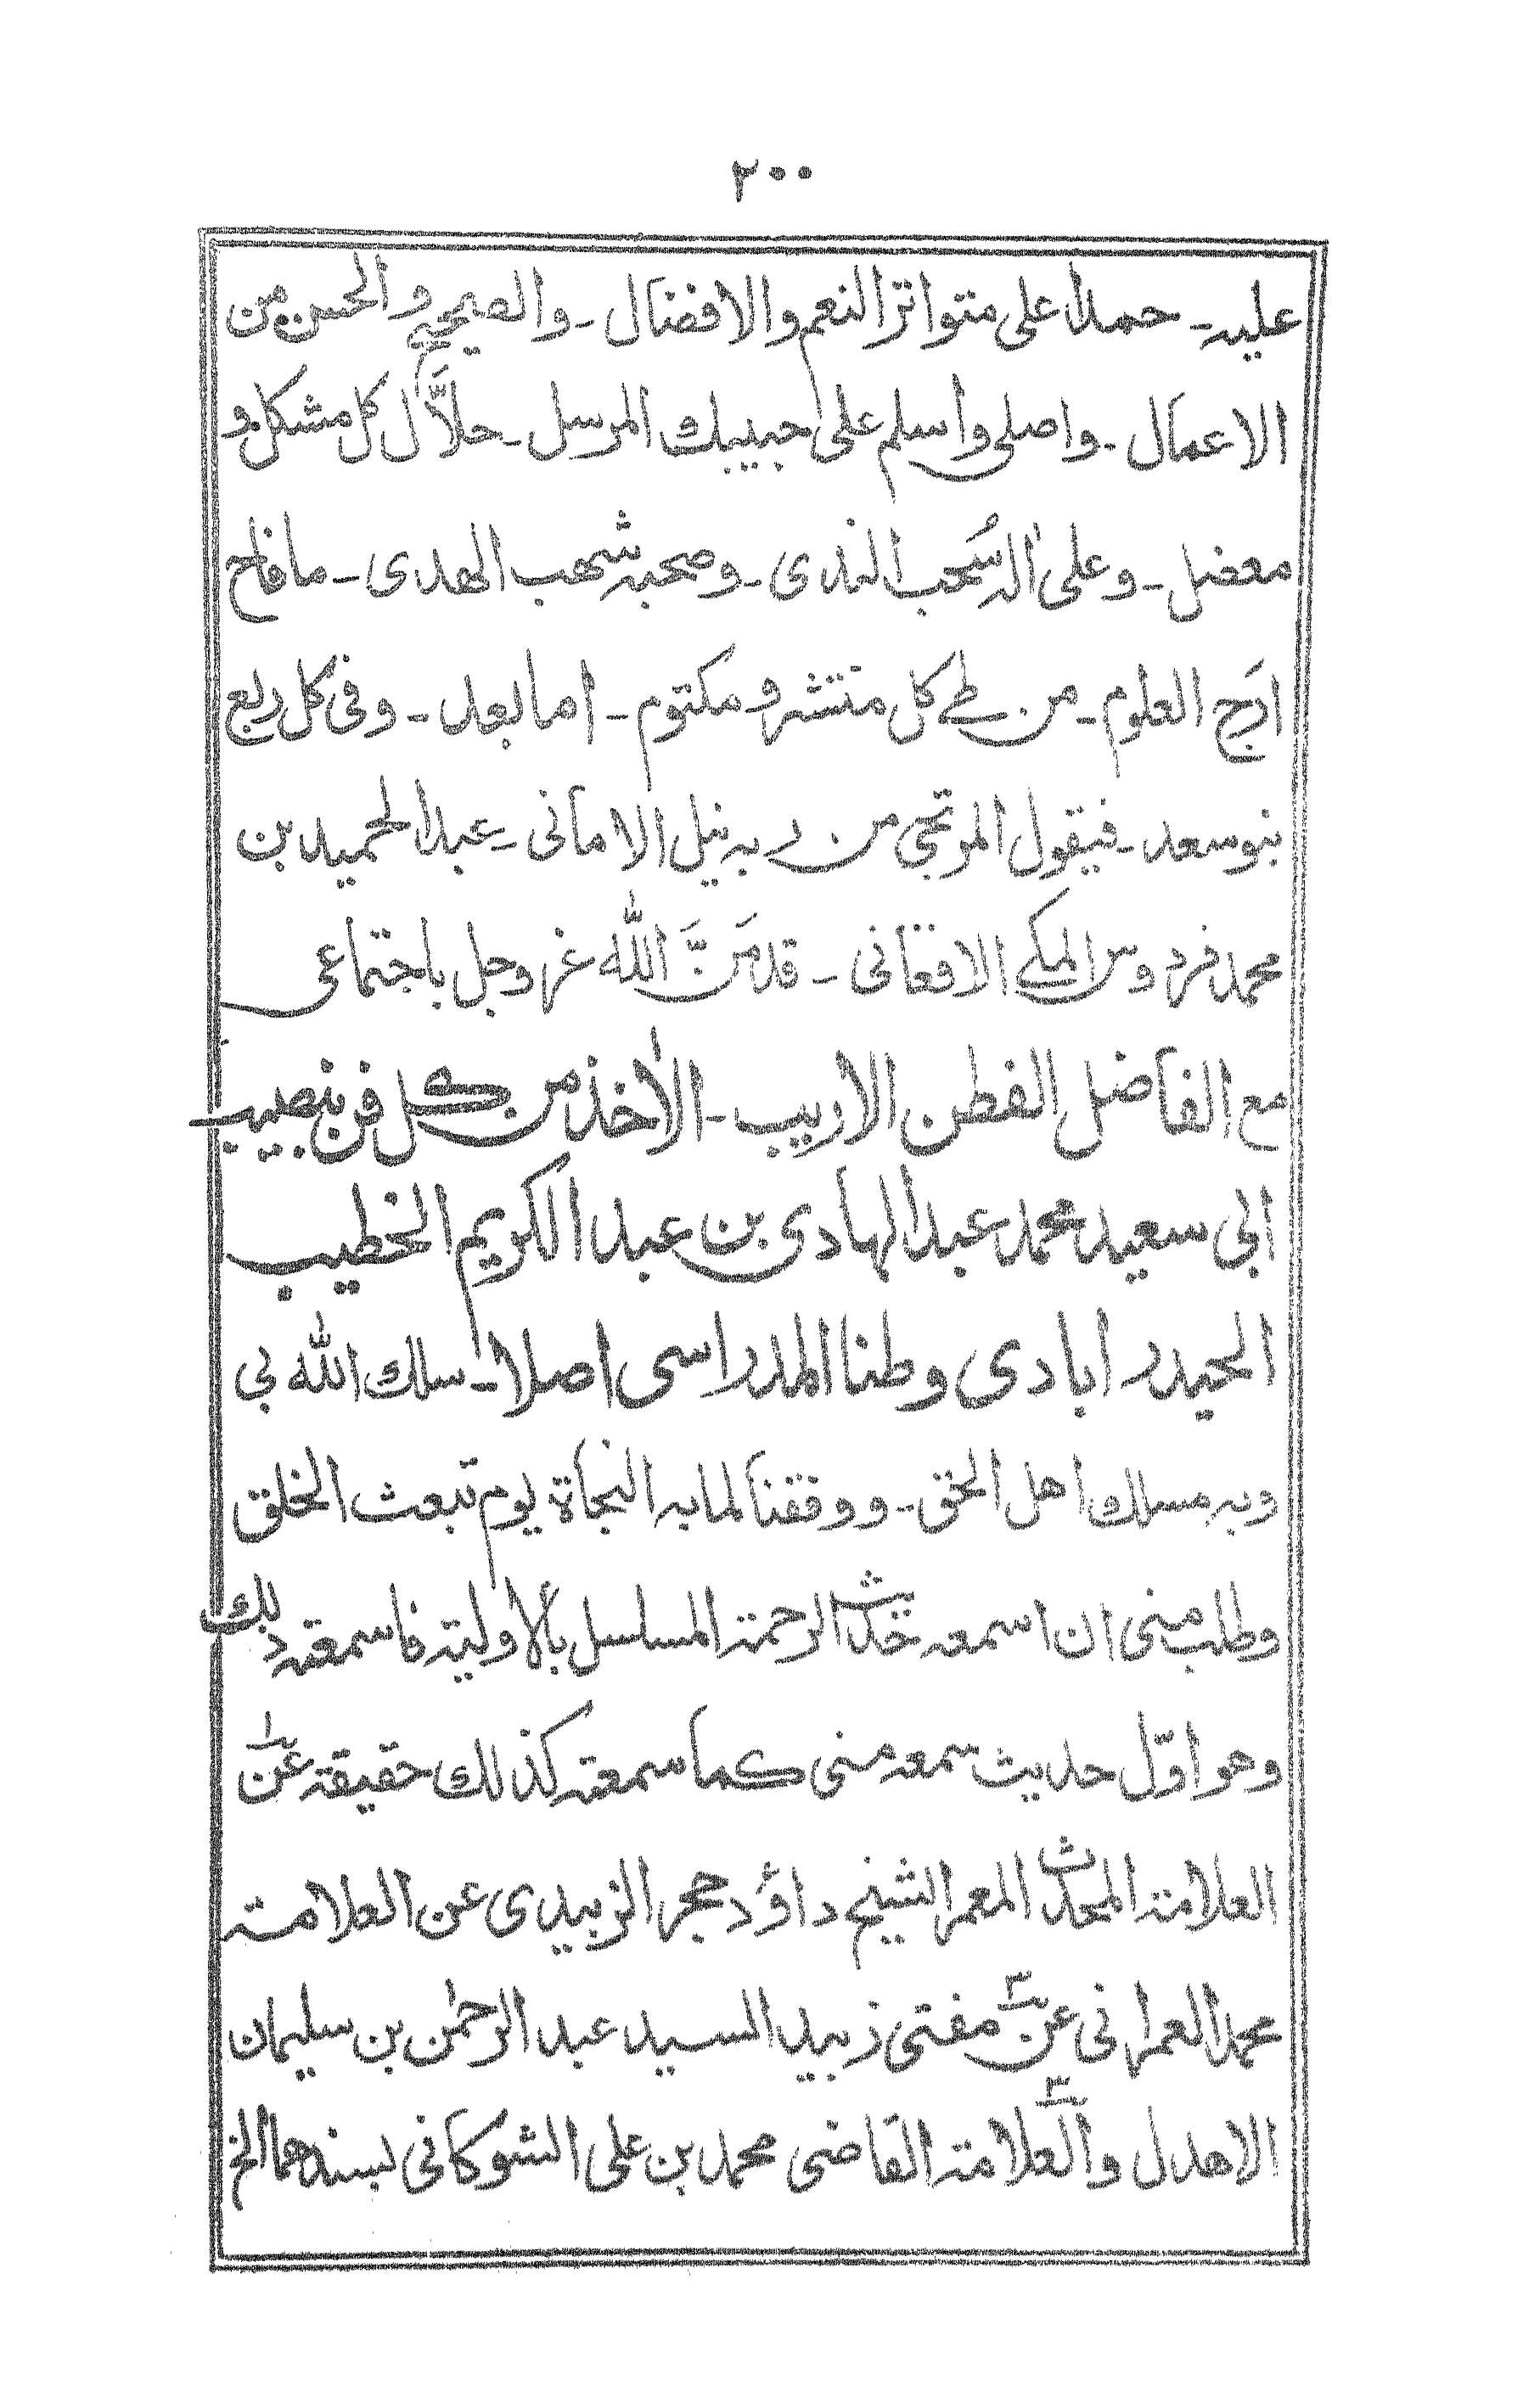 ٢٠٠
عليه ـ حمدا على متواتر النعم والافضال ـ والصحيح والحسن من
الاعمال ـ واصلى واسلم على حبيبك المرسل ـ حلاَّل كل مشكل و
معضل ـ وعلى اٰله سُحب الندى ـ وصحبه شهب الهدى ـ ما فاح
ارَج العلوم ـ من طى كل منتشر و مكتوم ـ اما بعد ـ وفى كل ربع
بنو سعد ـ فيقول المرتجى من ربه نيل الامانى ـ عبد الحميد بن
محمد فردوس المكى الافغانى ـ قد مَنَّ الله عز وجل باجتماعى
مع الفاضل الفطن الاريب ـ الاٰخذ من كل فن بنصيب
ابى سعيد محمد عبد الهادى بن عبد الكريم الخطيب
الحيدر ابادى وطنا المدراسى اصلا ـ سلك الله بى
وبه مسلك اهل الحق ـ ووفقنا لما به النجاة يوم تبعث الخلق
وطلب منى ان اسمعه حديث الرحمة المسلسل بالأولية فاسمعته ذلك
وهو اوّل حديث سمعه منى كما سمعته كذلك حقيقة عن ١
العلامة المحدث المعمر الشيخ داؤد حجر الزبيدى عن العلامة
محمد العمرانى عن ٢ مفتى زبيد السيد عبد الرحمٰن بن سليمان
الاهدل و العلامة ٣ القاضى محمد بن على الشوكانى بسندهما الخ